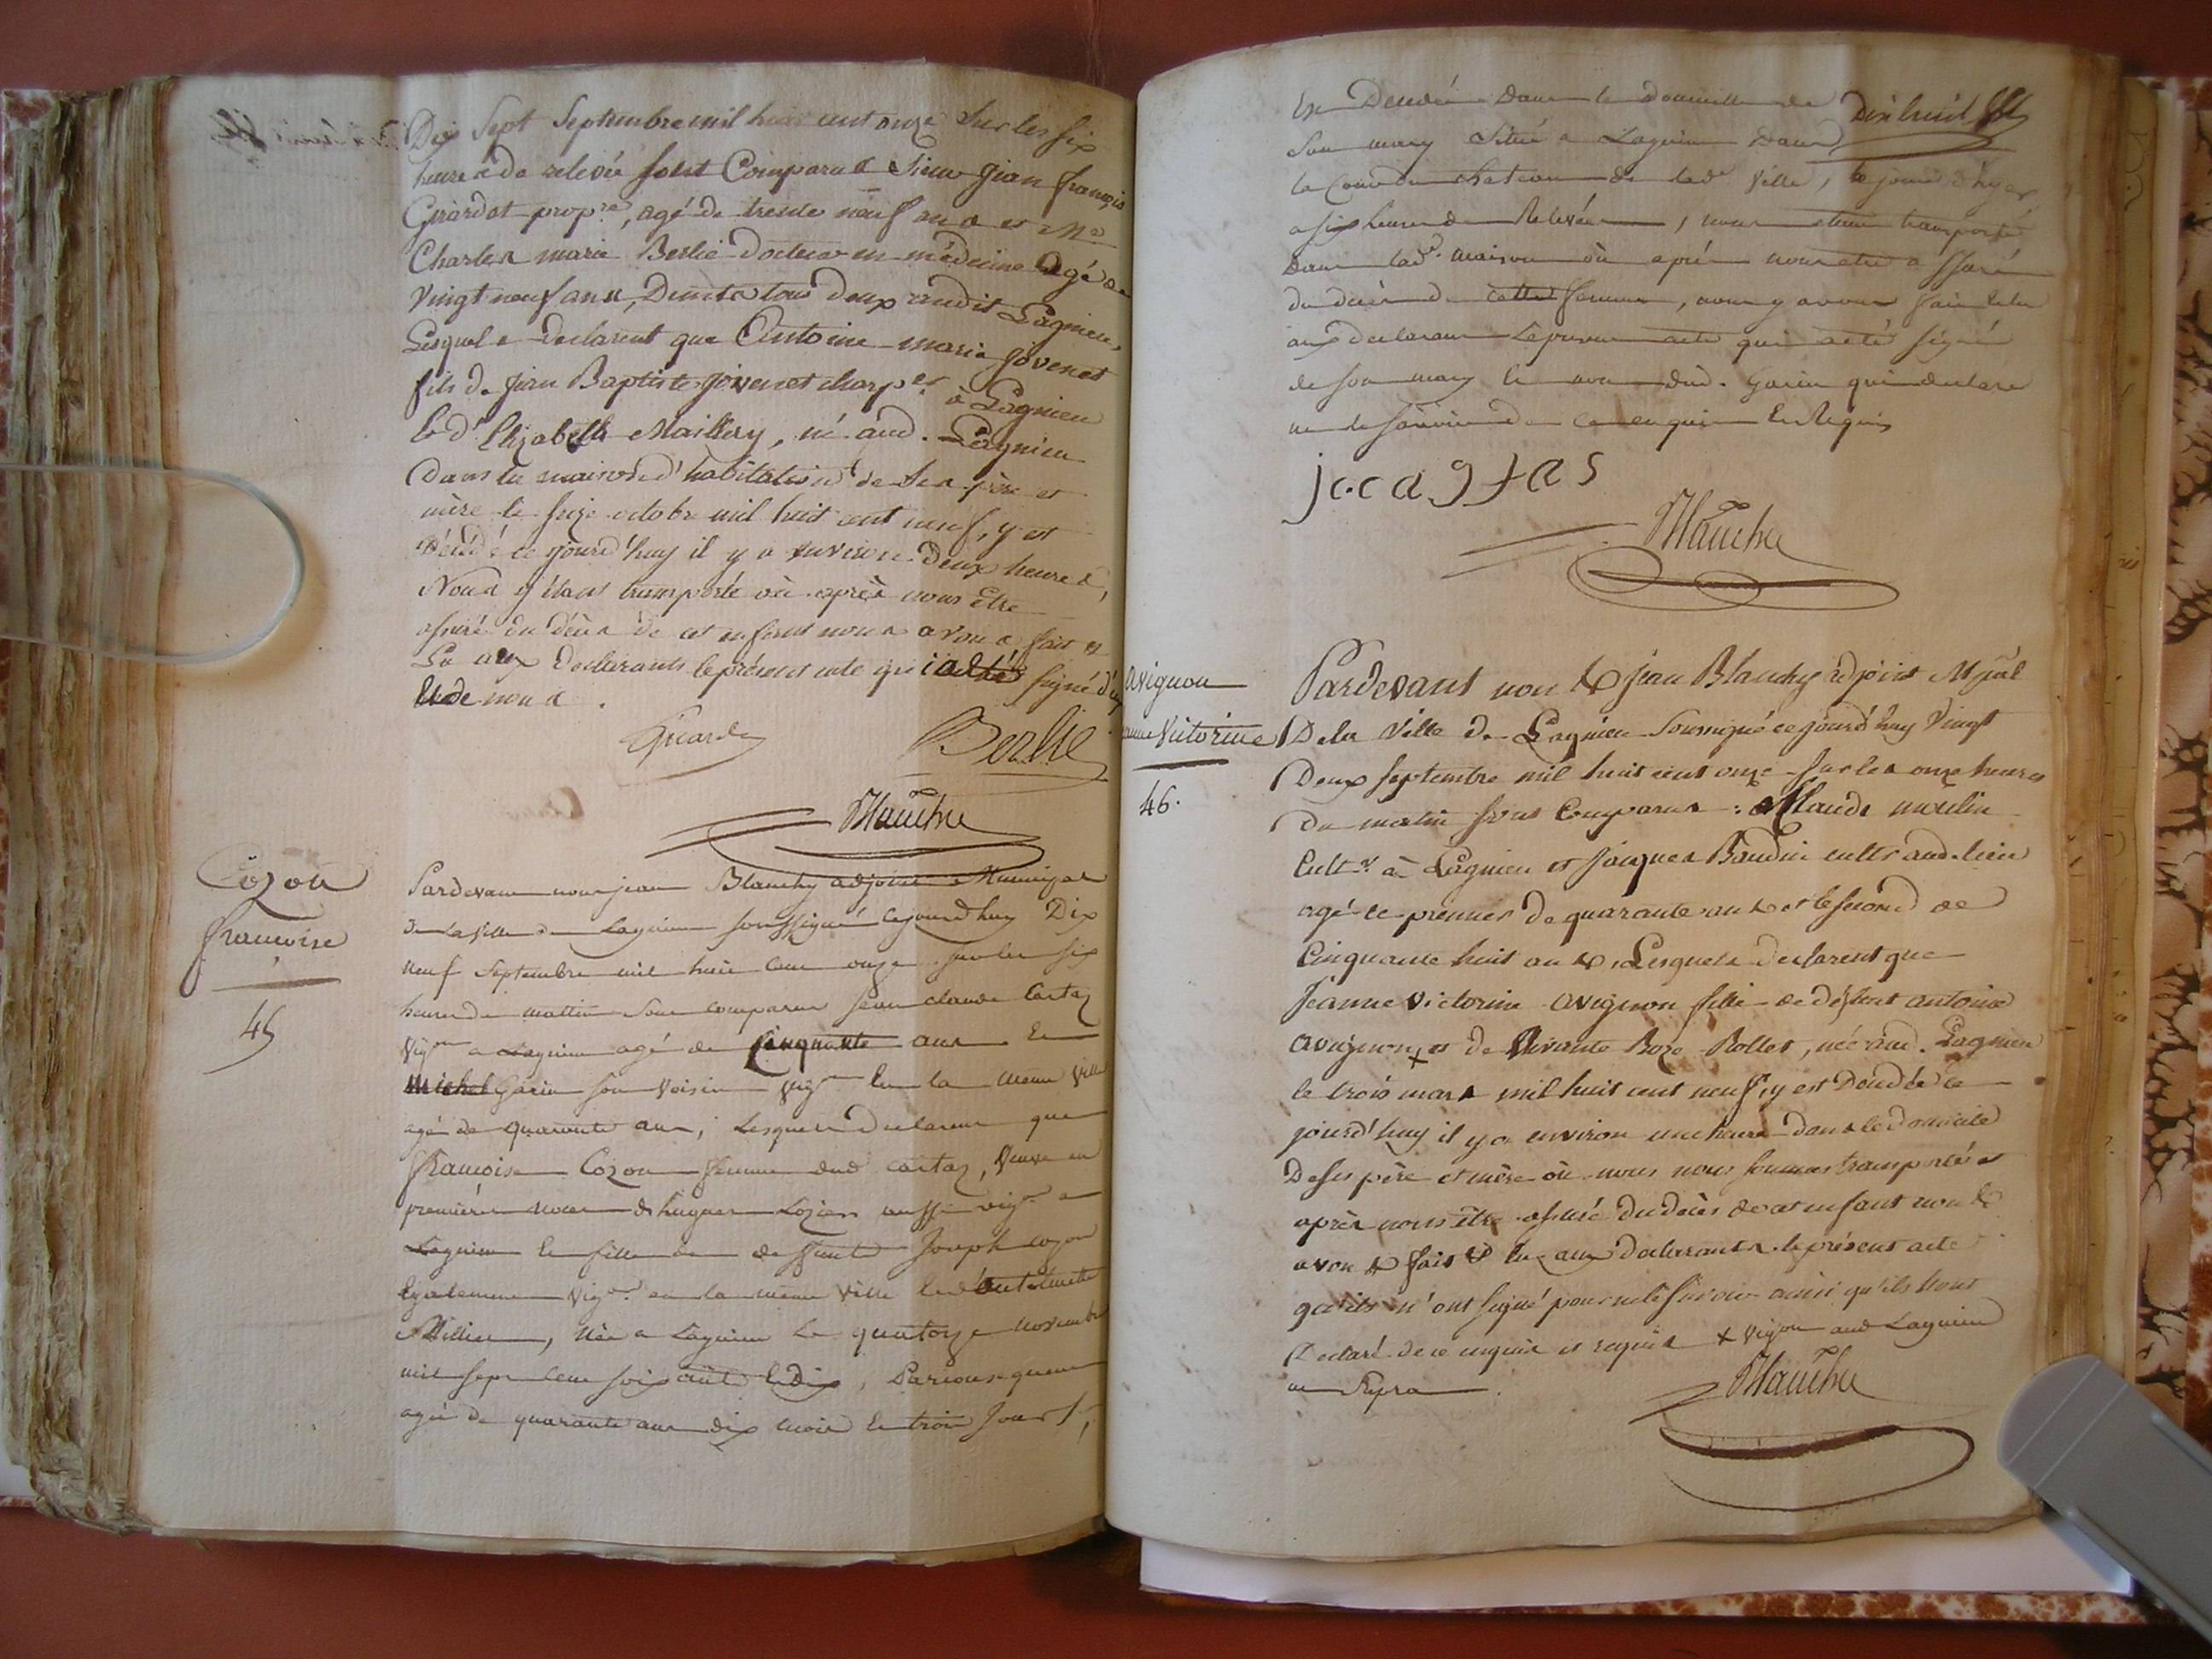 Dix Sept Septembre mil huit cent onze Sur les six
heures de relevée sont Comparus Sieur jean françois
Girardot propre, agé de trente neuf ans et Me
Charles marie Berlie docteur en médecine agé de
Vingt neuf ans, Demts tous deux audit Lagnieu,
Lesquels Declarent que Antoine marie jovenet
fils de jean Baptiste jovenet charper à Lagnieu
Et d'Elizabeth Maillery, né aud. Lagnieu
Dans la maison d'habitation de Ses père et
mère le seize octobre mil huit cent neuf, y est
Décédé ce jourd'huy il y a environ Deux heures,
Nous y étant transporté où après nous être
assuré du décès de cet enfant nous avons fait et
Lu aux Declarants le présent acte qui a été signé d'eux
Et de nous.
Girardot Berlie
Blanchy
Cozon
francoise
45
Pardevant nous jean Blanchy adjoint Municipal
De la Ville de Lagnieu soussigné cejourdhuy Dix
neuf Septembre mil huit cent onze sur les six
heures du mattin sont comparus jean claude Cartaz
vigon a Lagnieu agé de Cinquante ans Et
Michel Garin son voisin vigon En la meme ville
agé de quarante ans, Lesquels Declarent que
francoise Cozon femme dud cartaz, veuve en
premières noces de hugues aussi vigon a
Lagnieu Et fille de deffunt Joseph cozon
Egalement vigon en la même ville Et d'antoinette
Millien, née a Lagnieu Le quatorze novembre
mil sept cent soixante Et dix, Parconsequent
agée de quarante ans dix mois Et trois jours,
Est Decedée Dans le Domicille de Dix huit
Son mary Situé a Lagnieu Dans
la Cour du chateau de lade Ville, le jour d'hyer
a six heures de Relevée, nous etant transporté
Dans lade maison où après nous etre assuré
du décès de cette femme, nous y avons fait Et lu
aux declarants Le present acte qui a été signé
de son mary Et nous led. Garin qui declare
ne le savoir de ce enquis Et Requis
j c. c a g t a s
Blanchy
avignon
jeanne Victorine
46.
Pardevant nous jean Blanchy adjoint Mpal
De la Ville de Lagnieu Soussigné cejourd'huy Vingt
Deux Septembre mil huit cent onze sur les onze heures
Du matin sont Comparus: Claude moulin
Cultr à Lagnieu et jacques Baudin cultr aud. lieu
agé le premier de quarante ans et le second de
Cinquante huit ans, Lesquels declarent que
Jeanne Victorine avignon fille de défunt antoine
avignon + et de Vivante Roze Rollet, née aud. Lagnieu
le trois mars mil huit cent neuf, y est Décédée ce
jourd'huy il y a environ une heure dans le domicile
De ses père et mère où nous nous sommes transporté et
après nous être assuré du décès de cet enfant nous
avons fait et lu aux declarants le présent acte
qu'ils n'ont signé pour ne le savoir ainsi qu'ils l'ont
Declaré de ce enquis et requis + vigon aud Lagnieu
Blanchy